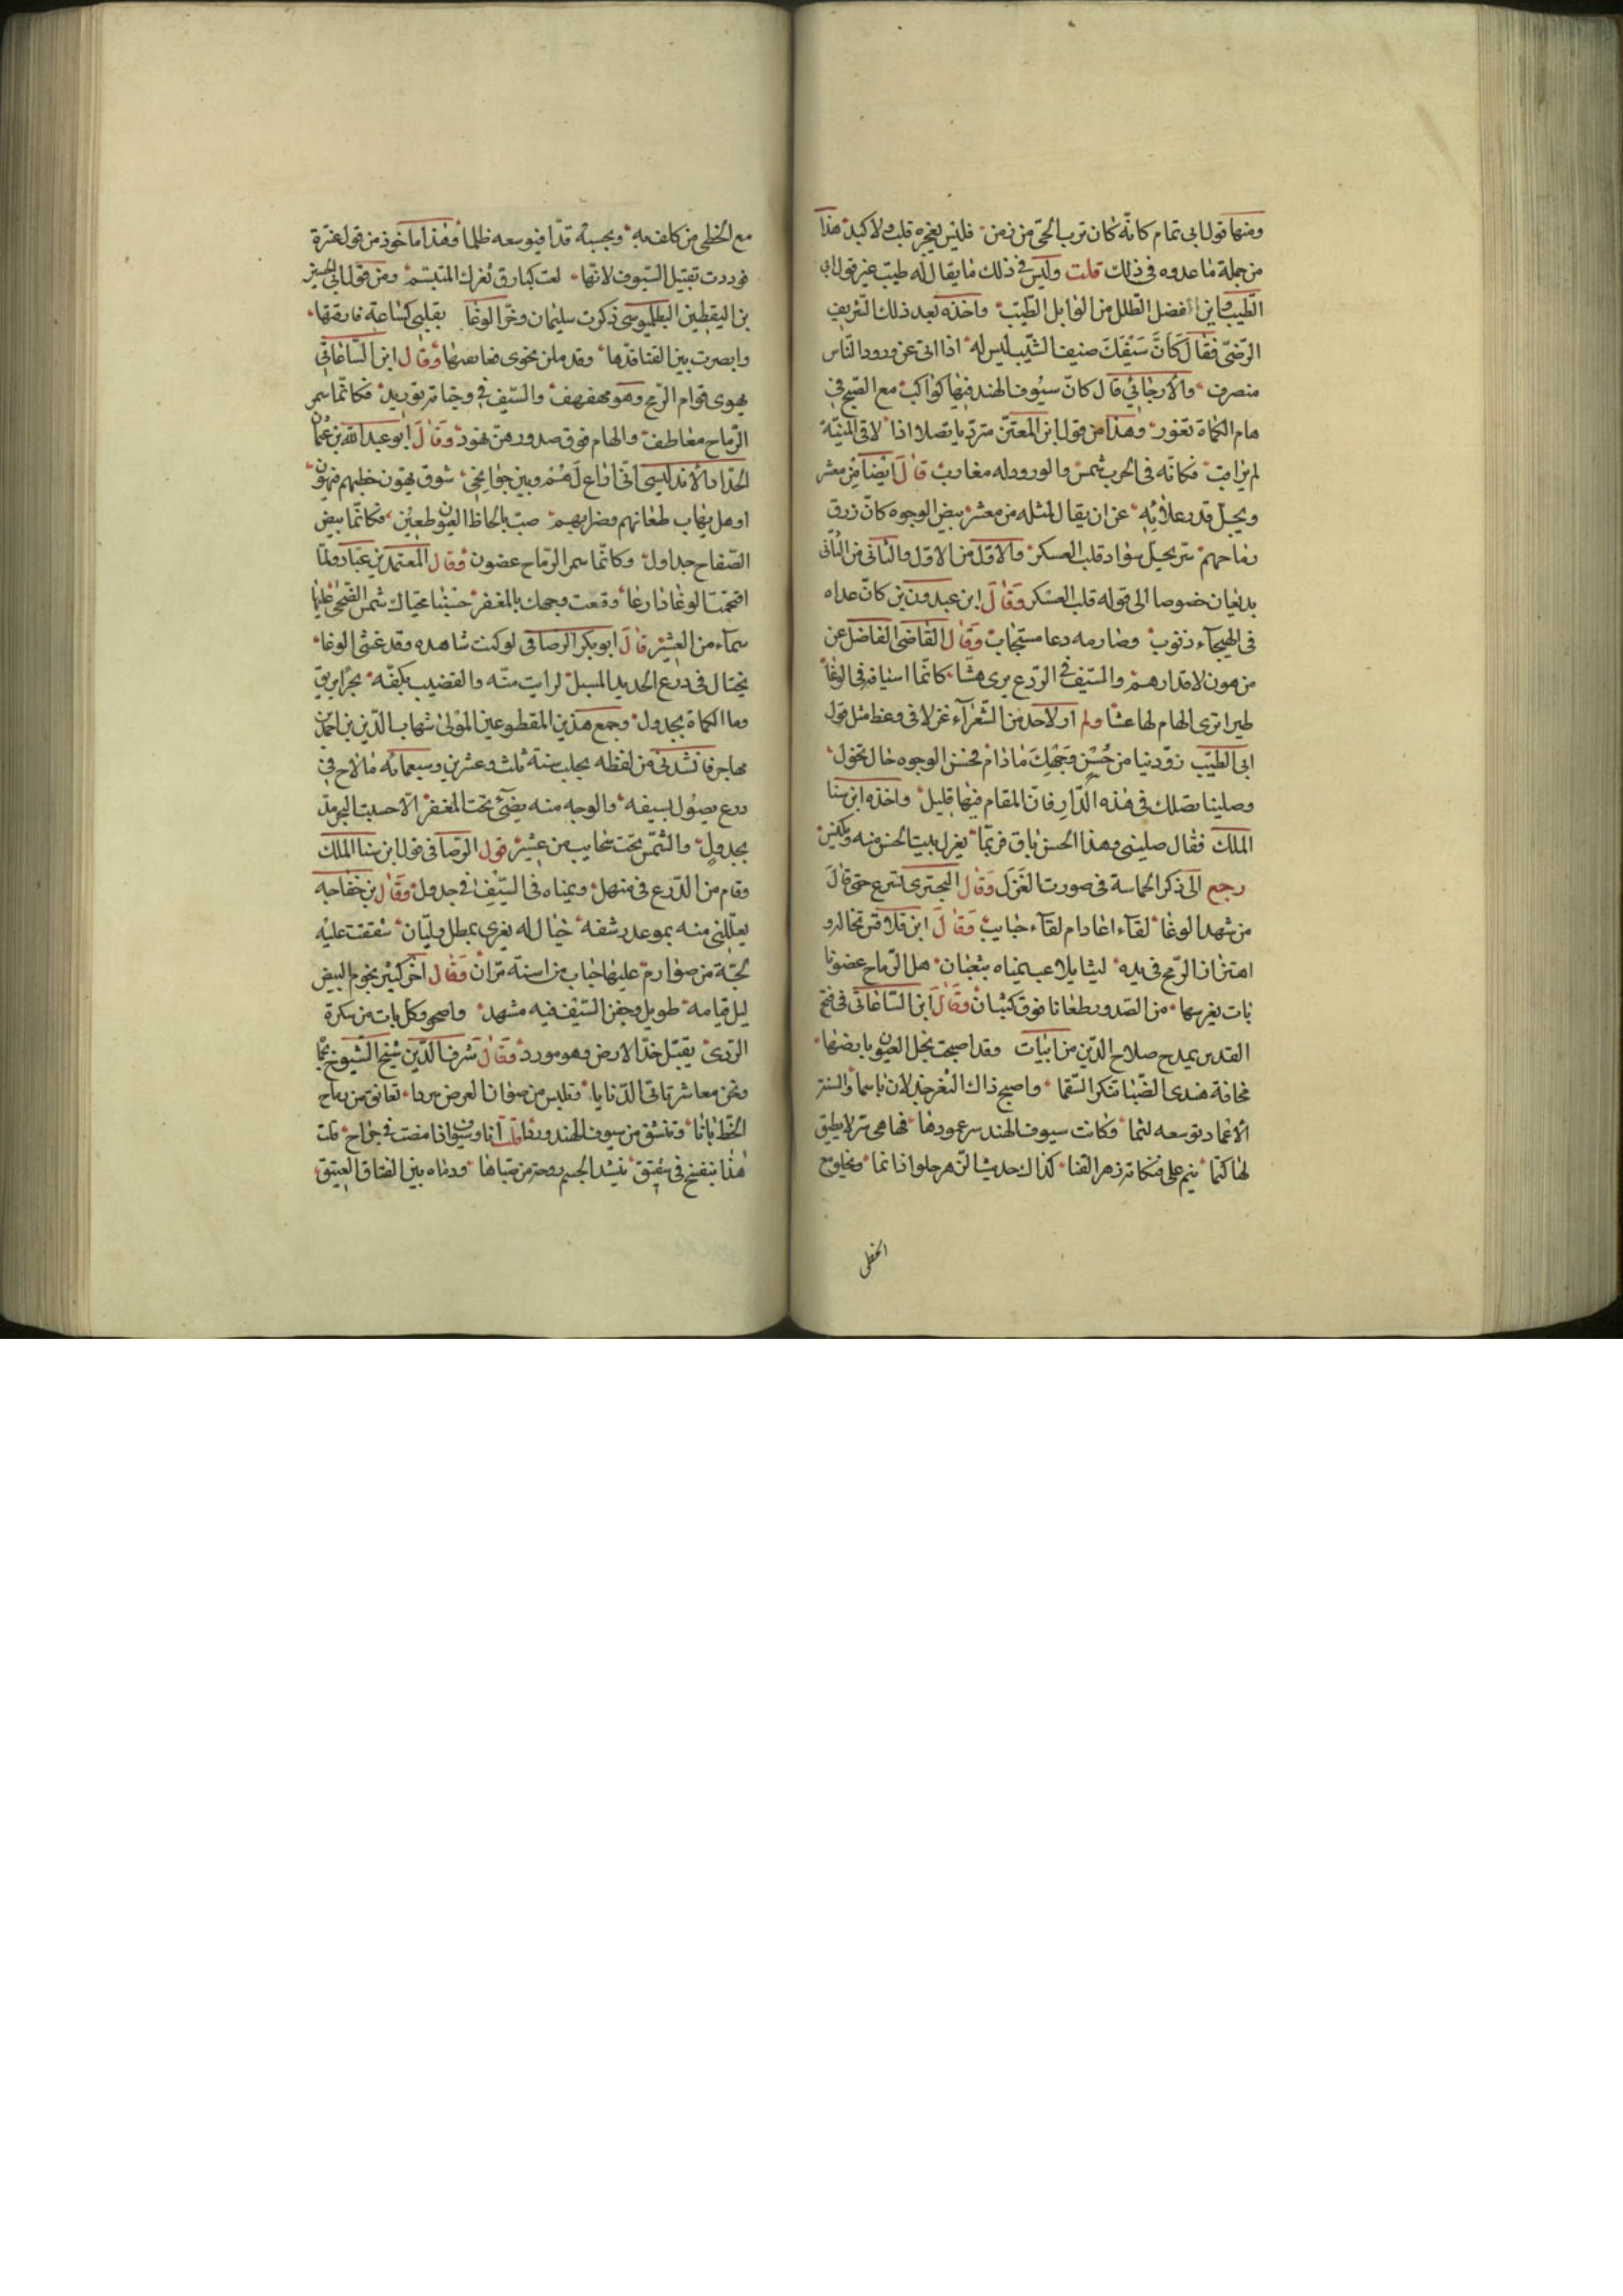 ومنها قول ابى تمام كانه كان ترب الحى من زمن فليس يعجزه قلب ولا كبد هذا
من جملة ما عدوه فى ذلك قلت وليس فى ذلك ما يقال له طيب غير قول ابى
الطيب واين افضل الطلل من الوابل الطيب واخذه بعد ذلك الشريف
الرضى فقال كان سيفك ضيف الشيب ليس له اذا اتى عن ورود الناس
منصرف والارجانى قال كان سيوف الهند فيها كواكب مع الصبح فى
هام الكماة تغور وهذا من قول ابن المعتز متردياً نصلا اذا لاقى المنية
لم يراقب فكانه فى الحرب شمس والورود له مغارب قال ايضا من معشر
ويجل قدر علائه عن ان يقال لمثله من معشر بيض الوجوه كان زرق
رماحهم سر يحل سواد قلب العسكر والاول من الاول والثانى من الثانى
بديعان خصوصا الى قوله قلب العسكر وقال ابن عبدون بن كان عداه
فى الهيجاء ذنوب وصارمه دعا مستجاب وقال القاضى الفاضل عن
من هون لاقدارهم والسيف فى الروع يرى هشا كانما اسيافه فى الوغا
طيرا ترى الهام لها عشا ولم ار لاحد من الشعراء غزلا فى وعظ مثل قول
ابى الطيب زودينا من حسن وجهك ما دام فحسن الوجوه حال تحول
وصلينا نصلك فى هذه الدار فان المقام فيها قليل واخذه ابن سنا
الملك فقال صلينى وهذا الحسن باق فربما يعزل بيت الحسن منه ويكنس
رجع الى ذكر الحماسة فى صورت الغزل وقال البحترى تسرع حتى قال
من شهد الوغا لقاء اعاد ام لقاء حبايب وقال ابن قلاقس تخاله و
اهتزاز الرمح فى يده ليثا يلاعب يمناه بثعبان هل الرماح غصونا
بات يغرسها من الصدور طعانا فوق كثبان وقال ابن الساعاتى فى فتح
القدس يمدح صلاح الدين من ابيات وقد اصبحت نجل العيون بارضها
مخافة هندى الضبا تنكر السقما واصبح ذاك الثغر جذلان باسما والسنة
الاغماد توسعه لثما وكانت سيوف الهند سر غمودها فها هى سر لا يطيق
لها كتما ينم على فتكاته زهر القنا كذاك حديث الزهر حلو اذا نما ويخلو مع
الخطى
مع الخطى من كلف به ويحسبه قدا فيوسعه ظلما وهذا ماخوذ من قول عنترة
فوددت تقبيل السيوف لانها لمعت كبارق ثغرك المتبسم ومن قول ابى الحسين
بن اليقطين البطليوسى ذكرت سليمان وحر الوغا بقلبى كساعة فارقتها
وابصرت بين القنا قدها وقد ملن نحوى فعانقتها وقال ابن الساعاتى
يهوى قوام الرمح وهو مهفهف والسيف فى وجناته توريد فكانما سمر
الرماح معاطف والهام فوق صدورهن نهود وقال ابو عبد الله بن عثمان
الحداد الاندلسى انى اراع لهم وبين جوانحى شوق يهون خطبهم فيهون
او هل يهاب طعانهم وضرابهم صب بالحاظ العيون طعين فكانما بيض
الصفاح جداول وكانما سمر الرماح غصون وقال المعتمد بن عباد ولما
اقتحمت الوغا دارعا وقنعت وجهك بالمغفر حسبنا محياك شمس الضحى عليها
سماء من العنبر قال ابو بكر الرصافى لو كنت شاهده وقد غشى الوغا
يختال فى درع الحديد المسبل لرايت منه والقضيب بكفه بحرا يريق
دما الكماة بجدول وجمع هذين المقطوعين المولى شهاب الدين بن احمد بن
مهاجر فانشدنى من لفظه بحلب سنة ثلث وعشرين وسبعمائه ما لاح فى
درع يصول بسيفه والوجه منه يضئ تحت المغفر الا حسبت البحر مد
بجدول والشمس تحت سحايب من عنبر قول الرصافى قول ابن سنا الملك
وقام من الدرع فى منهل ويمناه فى السيف فى جدول وقال ابن خفاجه
يعللنى منه بموعد رشفه خيال له يغرى بمطل وليان شققت عليه
لجة من صوارم عليها حباب من اسنة مران وقال اخر كثير نجوم البيض
ليل قيامه طويل وجفن السيف فيه مشهد واصحى وكل بات من سكرة
الردى يقبل خد الارض وهو مورد وقال شرف الدين شيخ الشيوخ بحما
ونحن معاشر تاتى الدنايا فتلبس من صوان العرض بردا تعانق من رماح
الخط بانا وتنشق من سيوف الهند وردا قلت انا وسيوف اذا مضت فى جراح قلت
هذا بنفسج فى شقيق ينشد الجسم روحه من ضباها ودماه بين النقا والعقيق